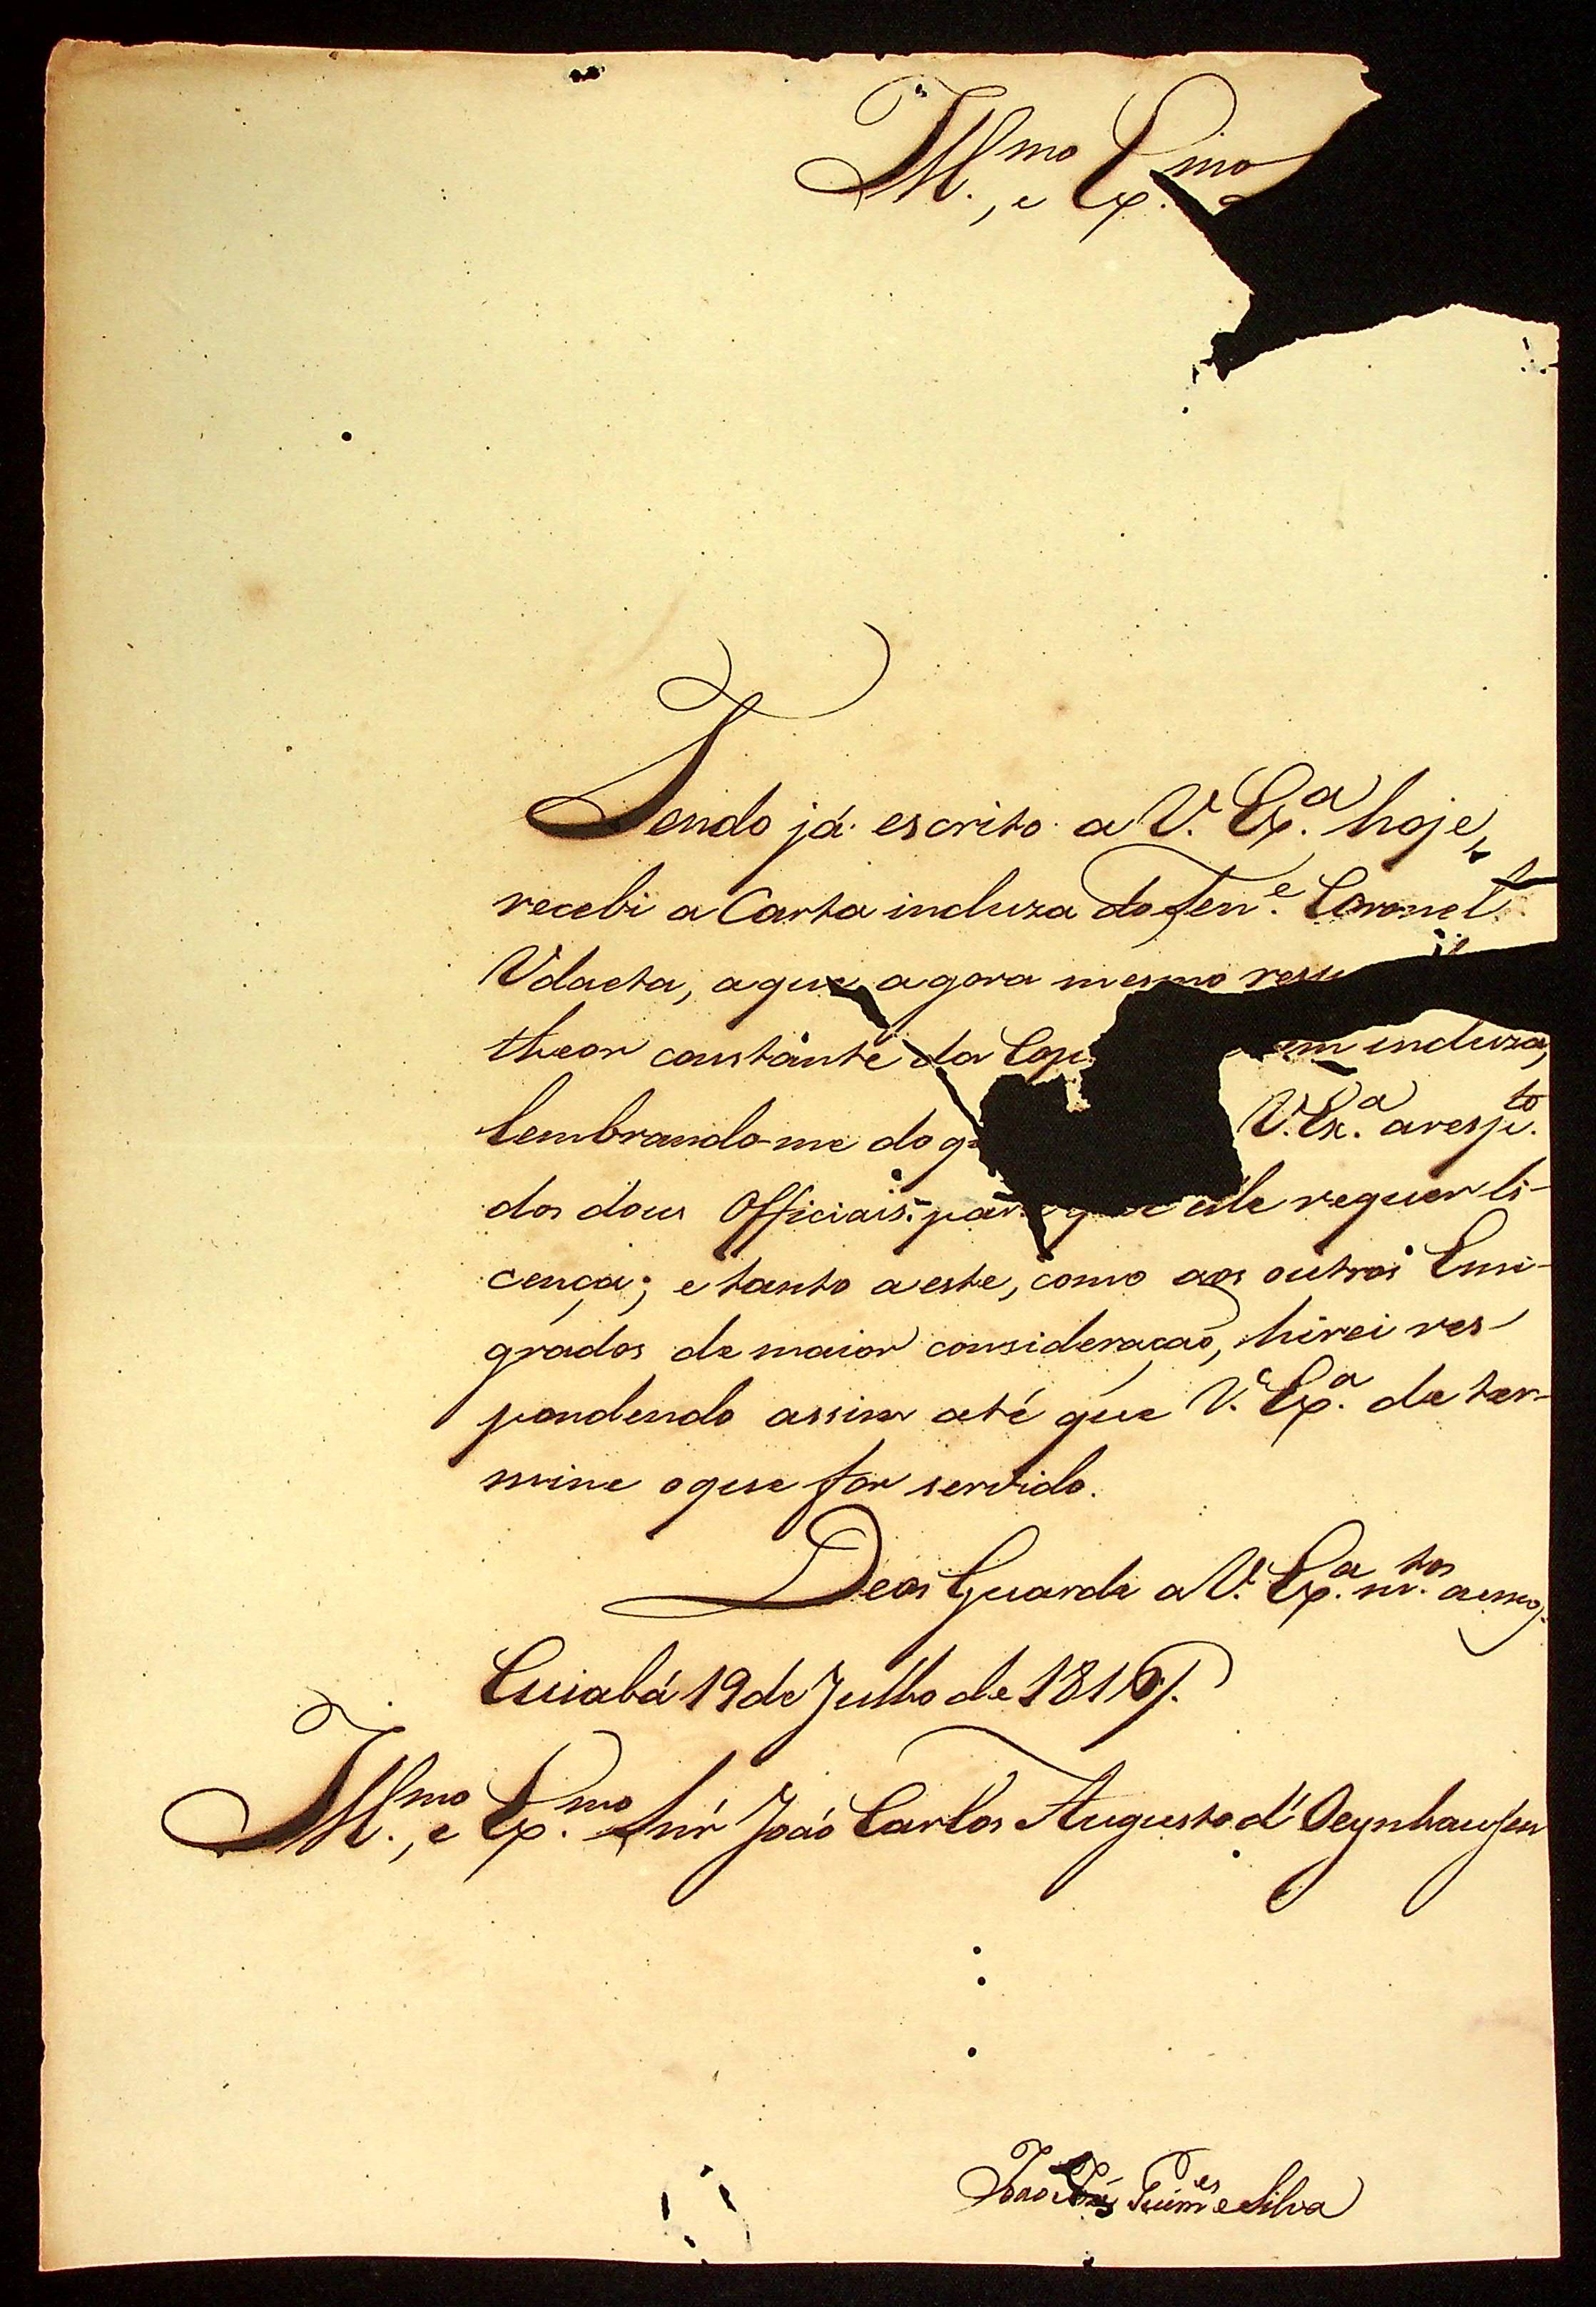 Ill.mo, e Ex.mo
Tendo já escrito a V. Ex.a hoje,
recebi a Carta incluza do Ten.e Coronel
Vdaeta, a que agora mesmo
theor constante da incluza,
lembrando-me do V. Ex.a a resp.to
dos dous Officiais para que ele requer li-
cença; e tanto a este, como aos outros Emi-
grados de maior consideração, hirei res-
pondendo assim até que V. Ex.a deter-
mine o que for servido.
Deos Guarde a V. Ex.a m.tos ann.
Cuiabá 19 de Julho de
Ill.mo, e Ex.mo Snr João Carlos Augusto d'Oeynhausen
João José Guim.es e Silva